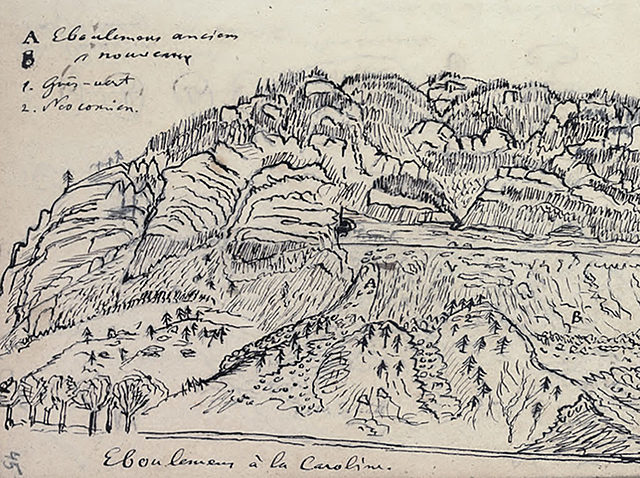 A Eboulemens anciens
B " nouveaux
1. Grès-vert
2. Néocomien.
A
B
A
Eboulemens à la Caroline.
45